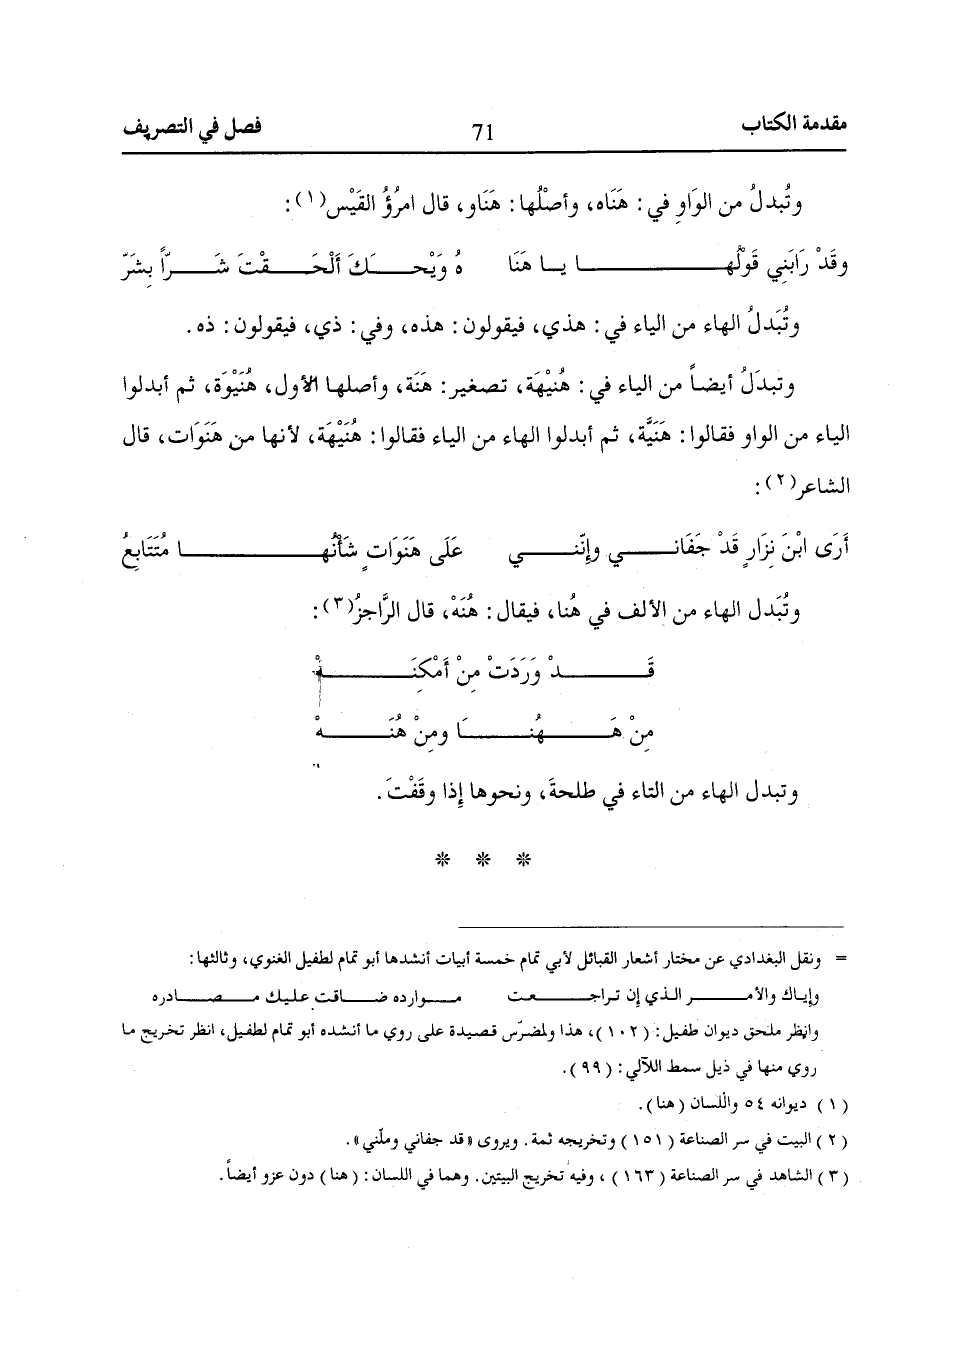 مقدمة الكتاب 71 فصل في التصريف
وتُبدلُ من الوَاوِ في: هَنَاه، وأصلُها: هَنَاو، قال امرُؤُ القَيْس(١):
وقَدْ رَابَنِي قَوْلُهـــــــــا يــا هَنَا هُ وَيْحـــــَــكَ أَلْحَـــــقْتَ شَـــــرّاً بِشَرّ
وتُبَدلُ الهاء من الياء في: هذي، فيقولون: هذه، وفي: ذي، فيقولون: ذه.
وتبدَلُ أيضاً من الياء في: هُنَيْهَة، تصغير: هَنَة، وأصلها الأول، هُنَيْوَة، ثم أبدلوا
الياء من الواو فقالوا: هَنَيَّة، ثم أبدلوا الهاء من الياء فقالوا: هُنَيْهَة، لأنها من هَنَوَات، قال
الشاعر(٢):
أَرَى ابْنَ نِزَارٍ قَدْ جَفَانــــــي وإنّنـــــــي عَلَى هَنَوَاتٍ شَأْنُهـــــــــــا مُتَتَابِعُ
وتُبَدل الهاء من الألف في هُنا، فيقال: هُنَهْ، قال الرَّاجزُ(٣):
قَـــــــــدْ وَرَدَتْ مِنْ أَمْكِنَـــــــــهْ
مِنْ هَـــــــهُنـــــــَا ومِنْ هُنَـــــــهْ
وتبدل الهاء من التاء في طلحةَ، ونحوها إذا وقَفْتَ.
* * *
= ونقل البغدادي عن مختار أشعار القبائل لأبي تمام خمسة أبيات أنشدها أبو تمام لطفيل الغنوي، وثالثها:
وإياك والأمـــــر الـذي إن تـراجـــــعت مـــــوارده ضـاقت عليك مـــــصـادره
وانظر ملحق ديوان طفيل: (١٠٢)، هذا ولمضرّس قصيدة على روي ما أنشده أبو تمام لطفيل، انظر تخريج ما
روي منها في ذيل سمط اللآلي: (٩٩).
(١) ديوانه ٥٤ واللسان (هنا).
(٢) البيت في سر الصناعة (١٥١) وتخريجه ثمة. ويروى «قد جفاني وملّني».
(٣) الشاهد في سر الصناعة (١٦٣)، وفيه تخريج البيتين. وهما في اللسان: (هنا) دون عزو أيضاً.